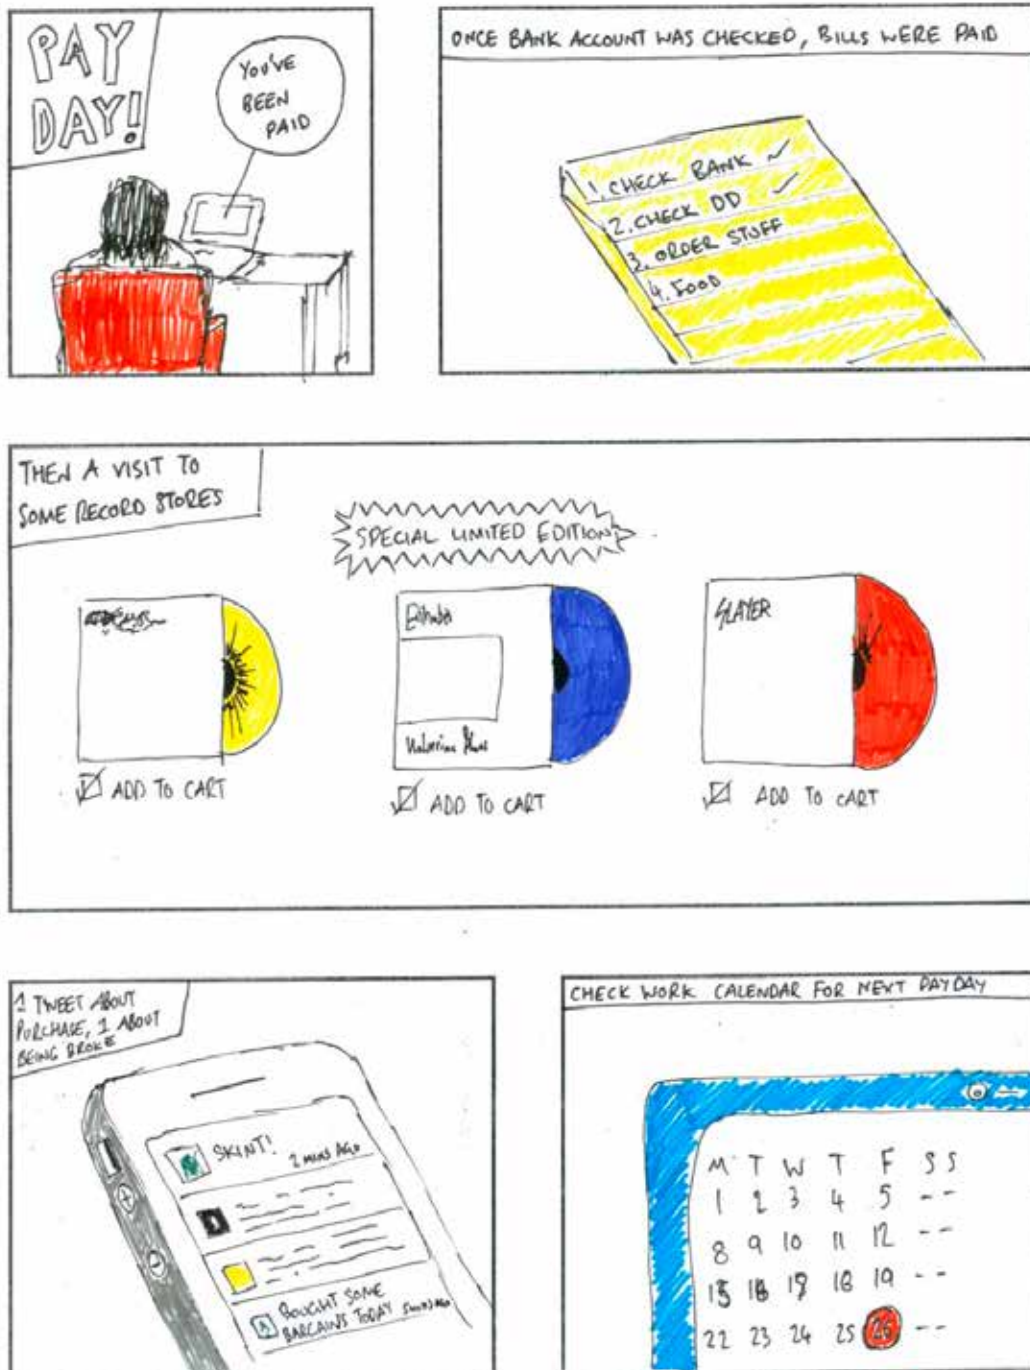 PAY
DAY!
YOU'VE
BEEN
PAID
ONCE BANK ACCOUNT WAS CHECKED, BILLS WERE PAID
1. CHECK BANK ✓
2. CHECK DD ✓
3. ORDER STUFF
4. FOOD
THEN A VISIT TO
SOME RECORD STORES
SPECIAL LIMITED EDITION
SLAYER
ADD TO CART
ADD TO CART
ADD TO CART
1 TWEET ABOUT
PURCHASE, 1 ABOUT
BEING BROKE
SKINT!
2 MINS AGO
BOUGHT SOME
BARGAINS TODAY
CHECK WORK CALENDAR FOR NEXT PAYDAY
M T W T F S S
1 2 3 4 5 - -
8 9 10 11 12 - -
15 16 17 18 19 - -
22 23 24 25 26 - -